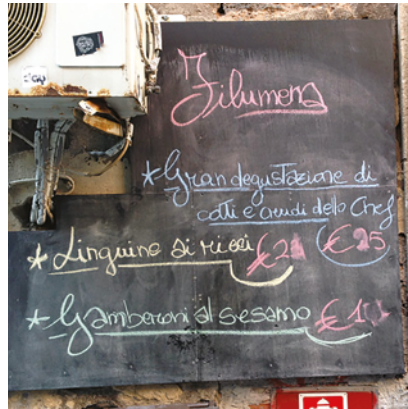 Filumena
*Gran degustazione di
cotti e crudi dello Chef
€25
*Linguine ai ricci
*Gamberoni al sesamo